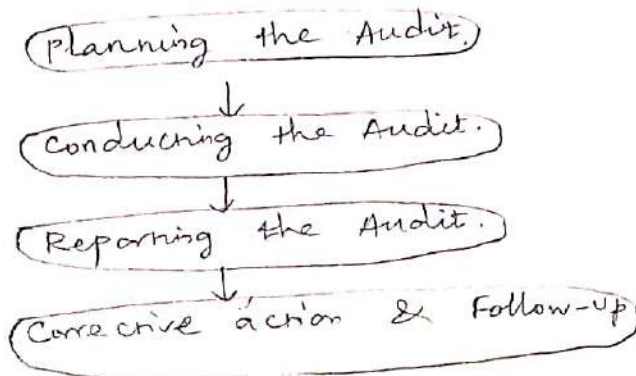 Planning the Audit.
Conducting the Audit.
Reporting the Audit.
Corrective action & Follow-up.